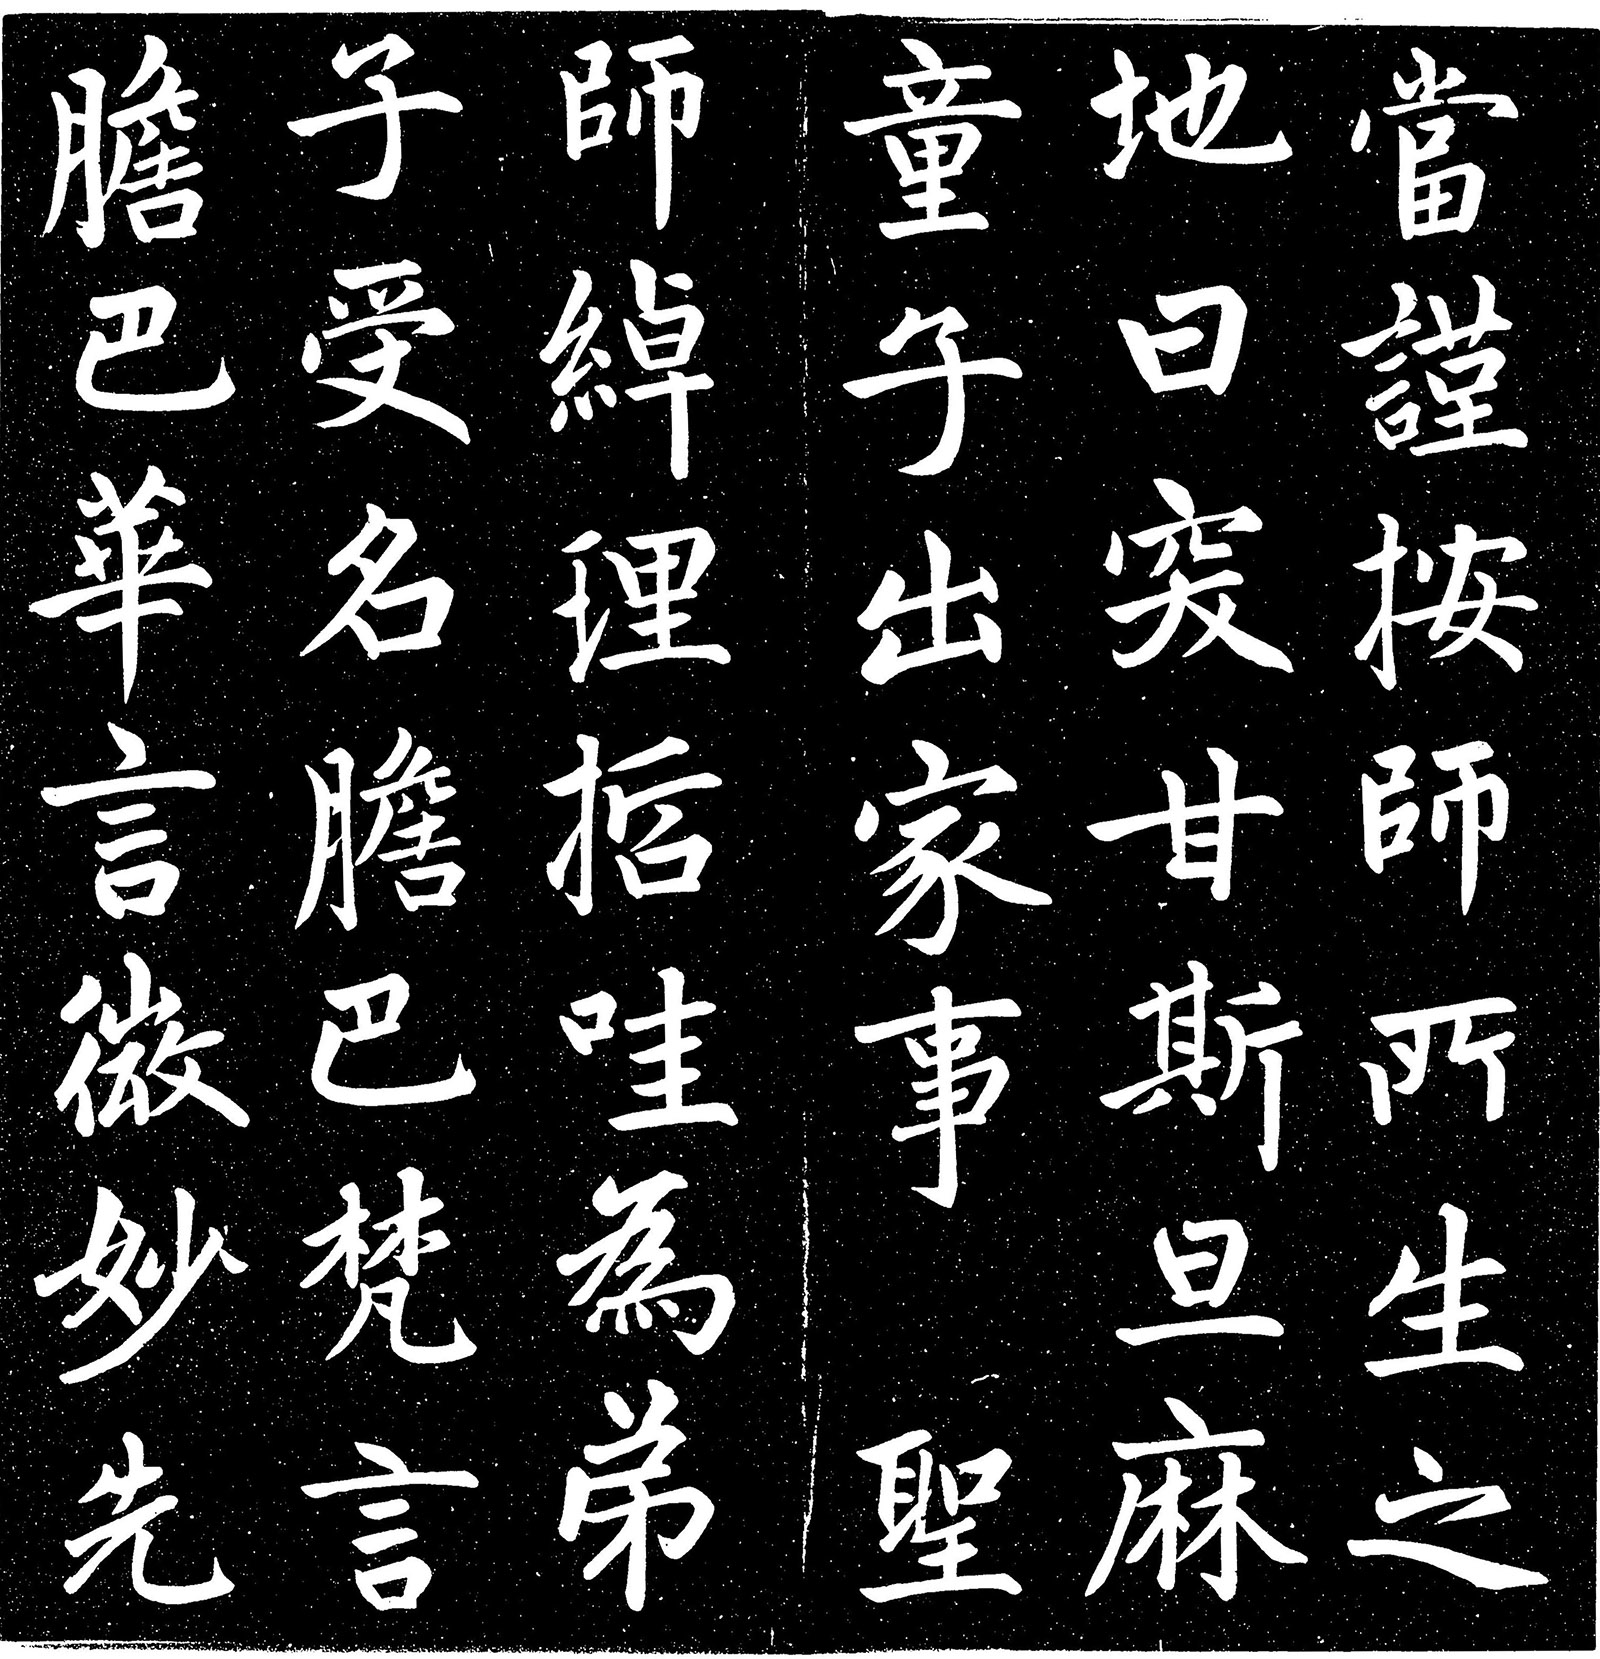 當謹按師所生之
地曰突甘斯旦麻
童子出家事聖
師綽理哲哇為弟
子受名膽巴梵言
膽巴華言微妙先